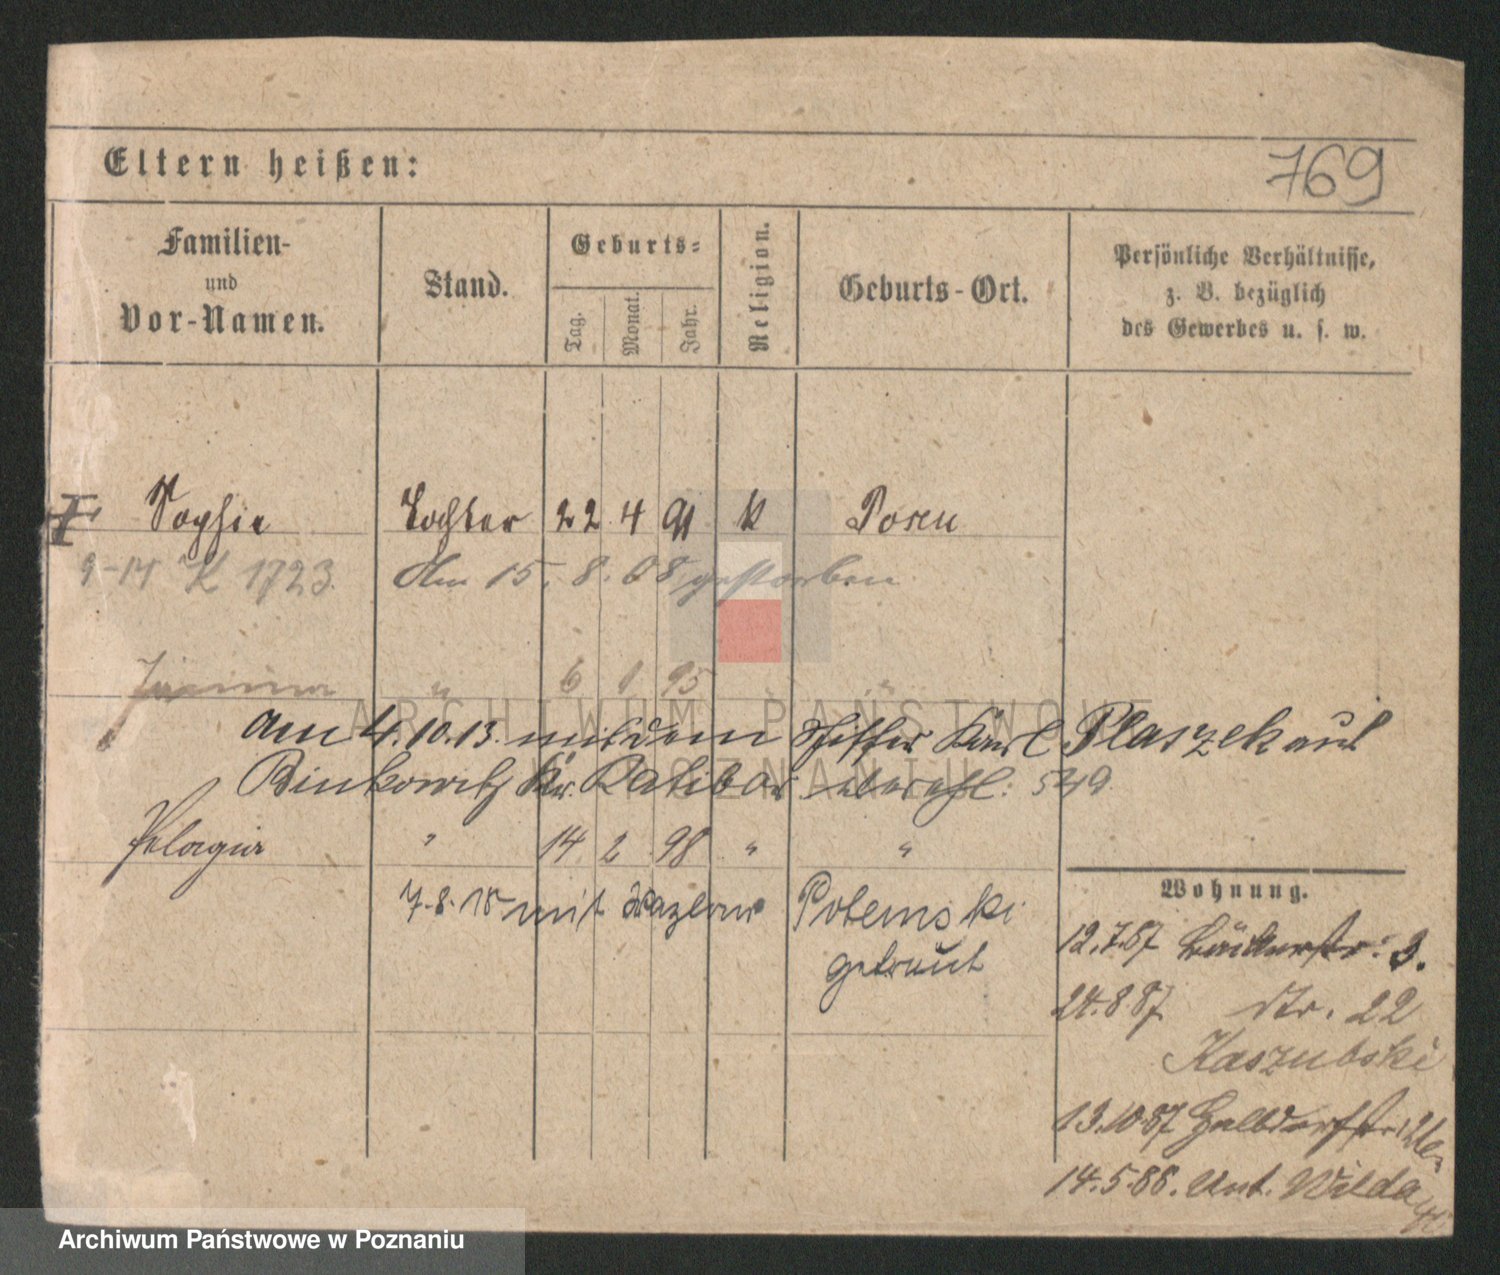 Eltern heißen:
769
Familien-
und
Vor-Namen.
Stand.
Geburts-
Tag.
Monat.
Jahr.
Religion.
Geburts-Ort.
Persönliche Verhältnisse,
z. B. bezüglich
des Gewerbes u. s. w.
Sophie Tochter 22 4 91 k Posen
9-14 K 1723. Am 15. 8. 08 gestorben
Janina " 6 1 95 "
am 4.10.13. mit dem Schiffer Karl Plaszek aus
Binkowitz Kr. Ratibor verehl. 549.
Pelagia " 14 2 98 " "
7.8.18 mit Potemski
getraut
Wohnung.
12.7.87 Bäckerstr. 3.
24.8.87 Str. 22
Kaszubski
13.10.87 Halbdorfstr.
14.5.88. Unt. Wilda
ARCHIWUM PAŃSTWOWE
W POZNANIU
Archiwum Państwowe w Poznaniu